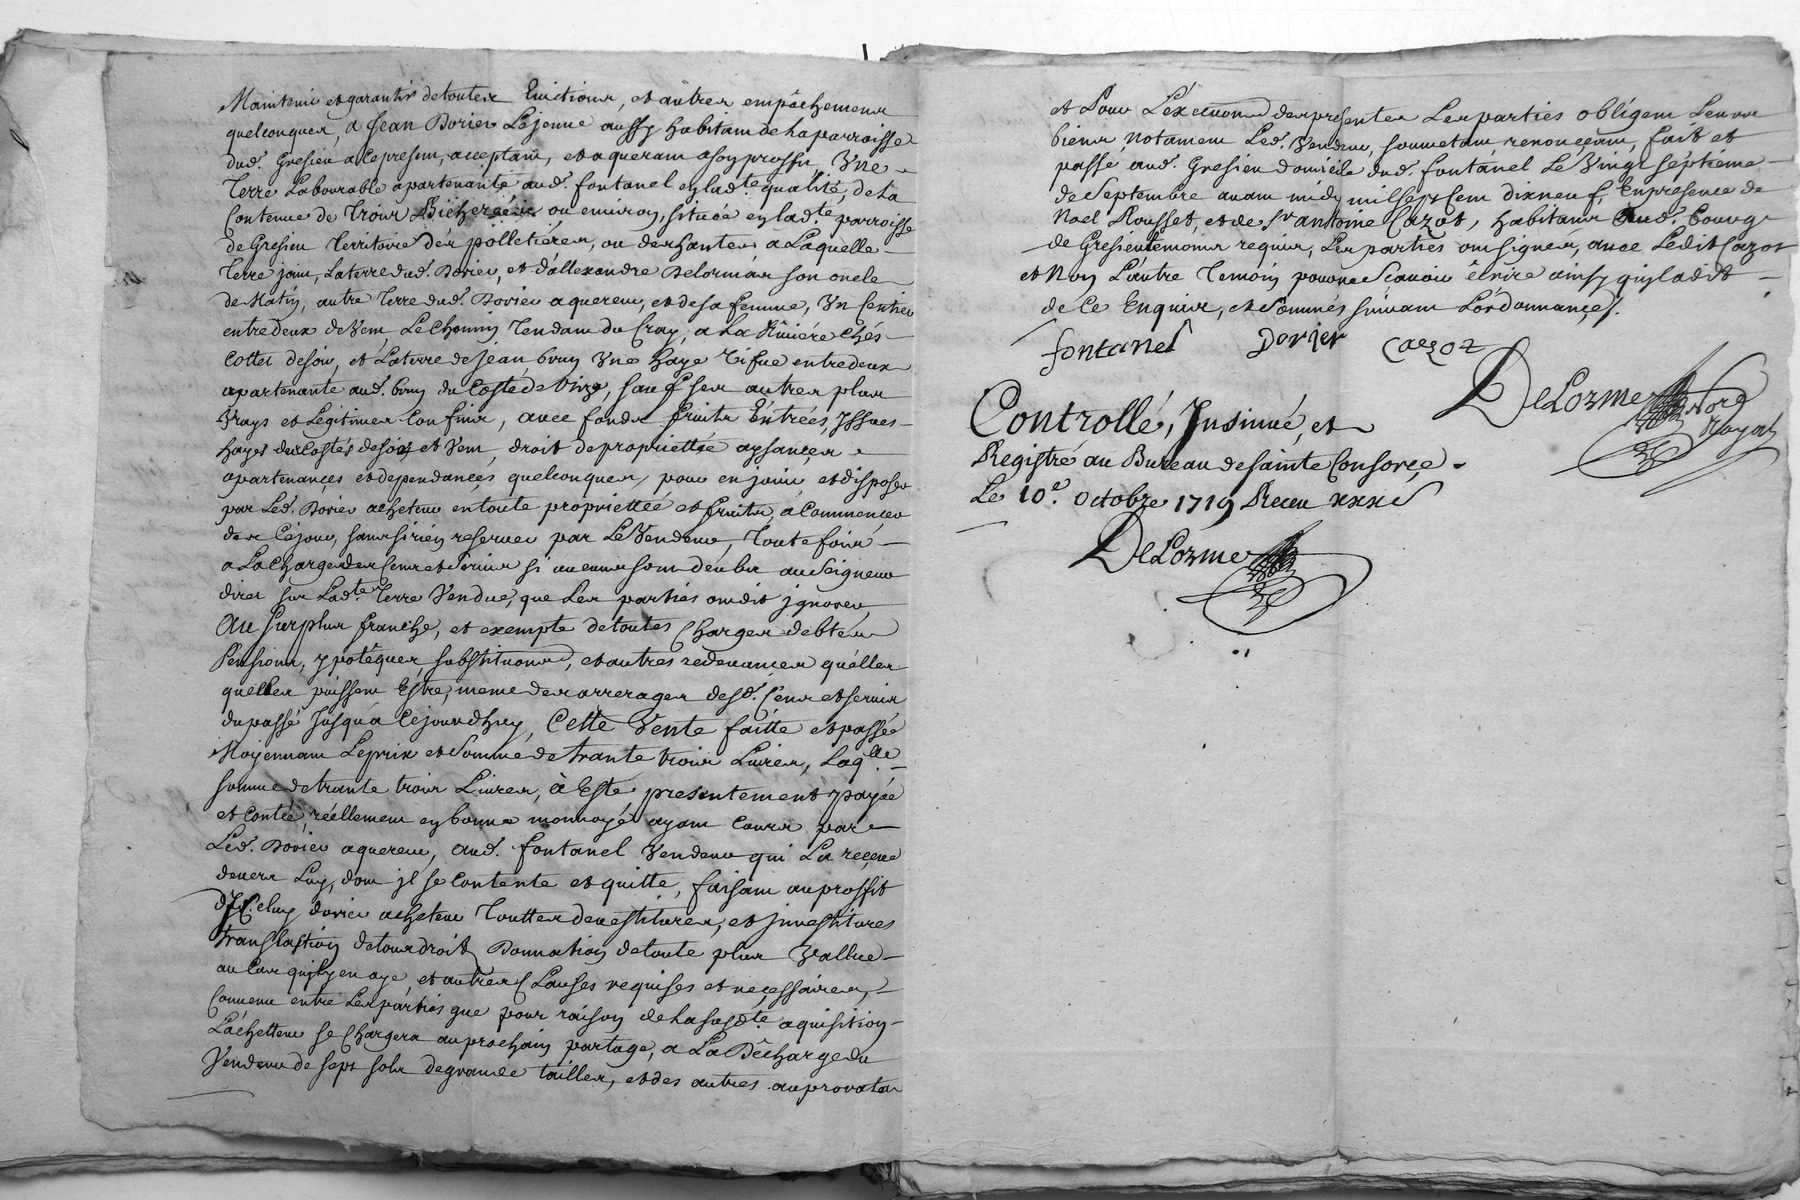 Maintenir et garantir de toutes Evictions, et autres empêchemens
quelconques, a Jean Dorier Lejeune aussy habitant de la parroisse
dud. Gresieu a ce present, acceptant, et aquerant a son proffit Une
Terre Labourable apartenante aud. fontanel en lad.te qualité, de la
Contenue de Trois Bicherées ou environ, située en lad.te parroisse
de Gresieu Territoire des polletieres, ou des hantes a Laquelle
Terre joint, La terre dud. Dorier, et d'allexandre Delorme son oncle
de Matin, autre Terre dud. Dorier aquereur, et de sa femme, Un Sentier
entredeux de Vent, Le Chemin Tendant du Cray, a La Riviére
Cotter de soir, et La terre de Jean brun Une haye Vifue entredeux
apartenante aud. brun du Coste de bize, sauf ses autres plus
Vrays et Légitimes Confins, avec fonds fruits Entrées, Issues
hayes des Costés de soir et Vent, droit de propriettée aysances
apartenançes et dependançes quelconques, pour en jouir et disposer
par Led. Dorier acheteur en toute propriettée et fruits, a Commencer
des Cejour, sans si rien reserver par Le Vendeur, Toutefois
a La Charge des Cens et Servis si aucuns sont deubs au Seigneur
direct sur Lad.te Terre Vendue, que Les parties ont dit ignorer,
Au surplus franche, et exempte de toutes Charges debtes
Pensions, ypotêques substitutions, et autres redevances qu'elles
quelles puissent Estre, meme des arrerages desd. Cens et servis
du passé Jusqu'a Cejourdhuy, Cette Vente faitte et passée
Moyennant Le prix et Somme de trante trois Livres, Laq.lle
somme de trante trois Livres, à Esté presentement payée
et Contée, réellement en bonne monnoye ayant Cours par
Led. Dorier aquereur, aud. fontanel Vendeur qui La reçeue
devers Luy, dont jl se Contente et quitte, faisant au proffit
d'JCeluy dorier acheteur Touttes devestitures, et jnvestitures
translastion de tous droits Donnation de toute plus Vallue
au Cas quil y en aye, et autres Clauses requises et neçessaires,
Convenu entre Les parties que pour raison de La susd.te aquisition
L'achetteur se Chargera au prochain partage, a La Décharge du
Vendeur de sept sols de grande tailles, et des autres au proratas
et Pour L'éxecution des presentes Les parties obligent Leurs
biens, notament Led. Vendeur, soumetant renonçeant, fait et
passé aud. Gresieu domicile dud. fontanel Le Vingt septieme
de Septembre avant midy mil sept Cent dixneuf, En presence de
Noel Rousset, et de Sr antoine Cazot, habitans aud. bourg
de Gresieu temoins requis, Les parties ont signés, avec Ledit Cazot
et Non L'autre Temoin pour ne Scavoir écrire ainsy qu'il a dit
de Ce Enquis, et Sommés suivant L'ordonnançes.
fontanel Dorier Cazot
DeLorme Nore Royal
Controllé, Insinué, et
Registré au Bureau de sainte Consorçe
Le 10e. Octobre 1719 Receu xxxs
DeLorme